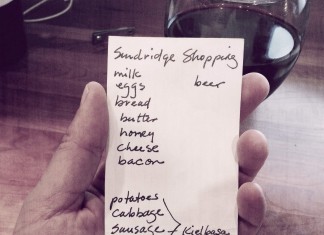 Sundridge Shopping
milk
eggs beer
bread
butter
honey
cheese
bacon
potatoes
Cabbage
Sausage / Kielbasa